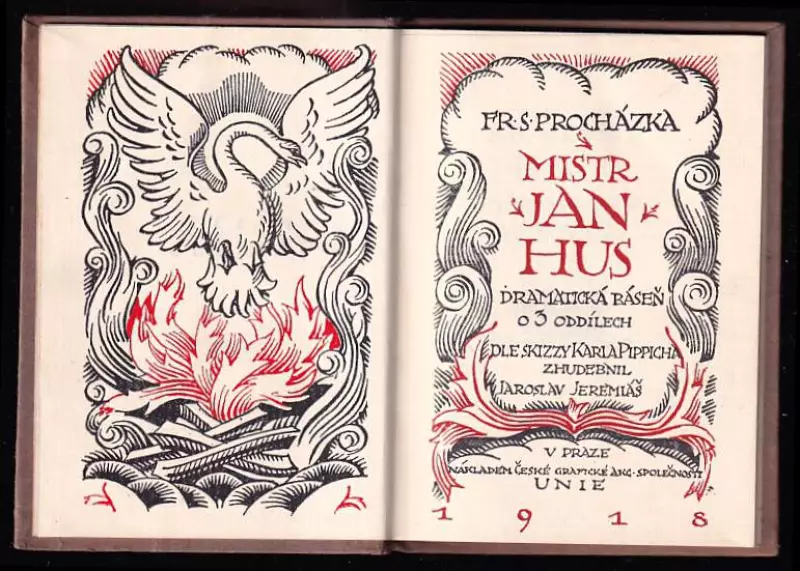 FR·S·PROCHÁZKA
MISTR
JAN
HUS
DRAMATICKÁ BÁSEŇ
O 3 ODDÍLECH
DLE SKIZZY KARLA PIPPICHA
ZHUDEBNIL
JAROSLAV JEREMIÁŠ
V PRAZE
NÁKLADEM ČESKÉ GRAFICKÉ AKC·SPOLEČNOSTI
UNIE
1918